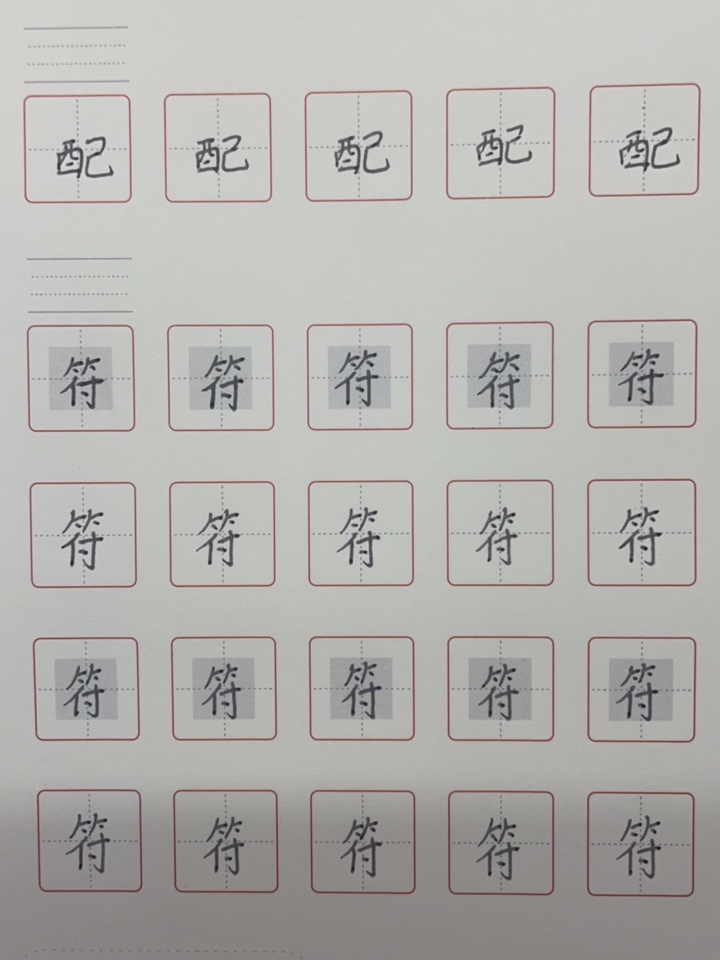 配 配 配 配 配
符 符 符 符 符
符 符 符 符 符
符 符 符 符 符
符 符 符 符 符